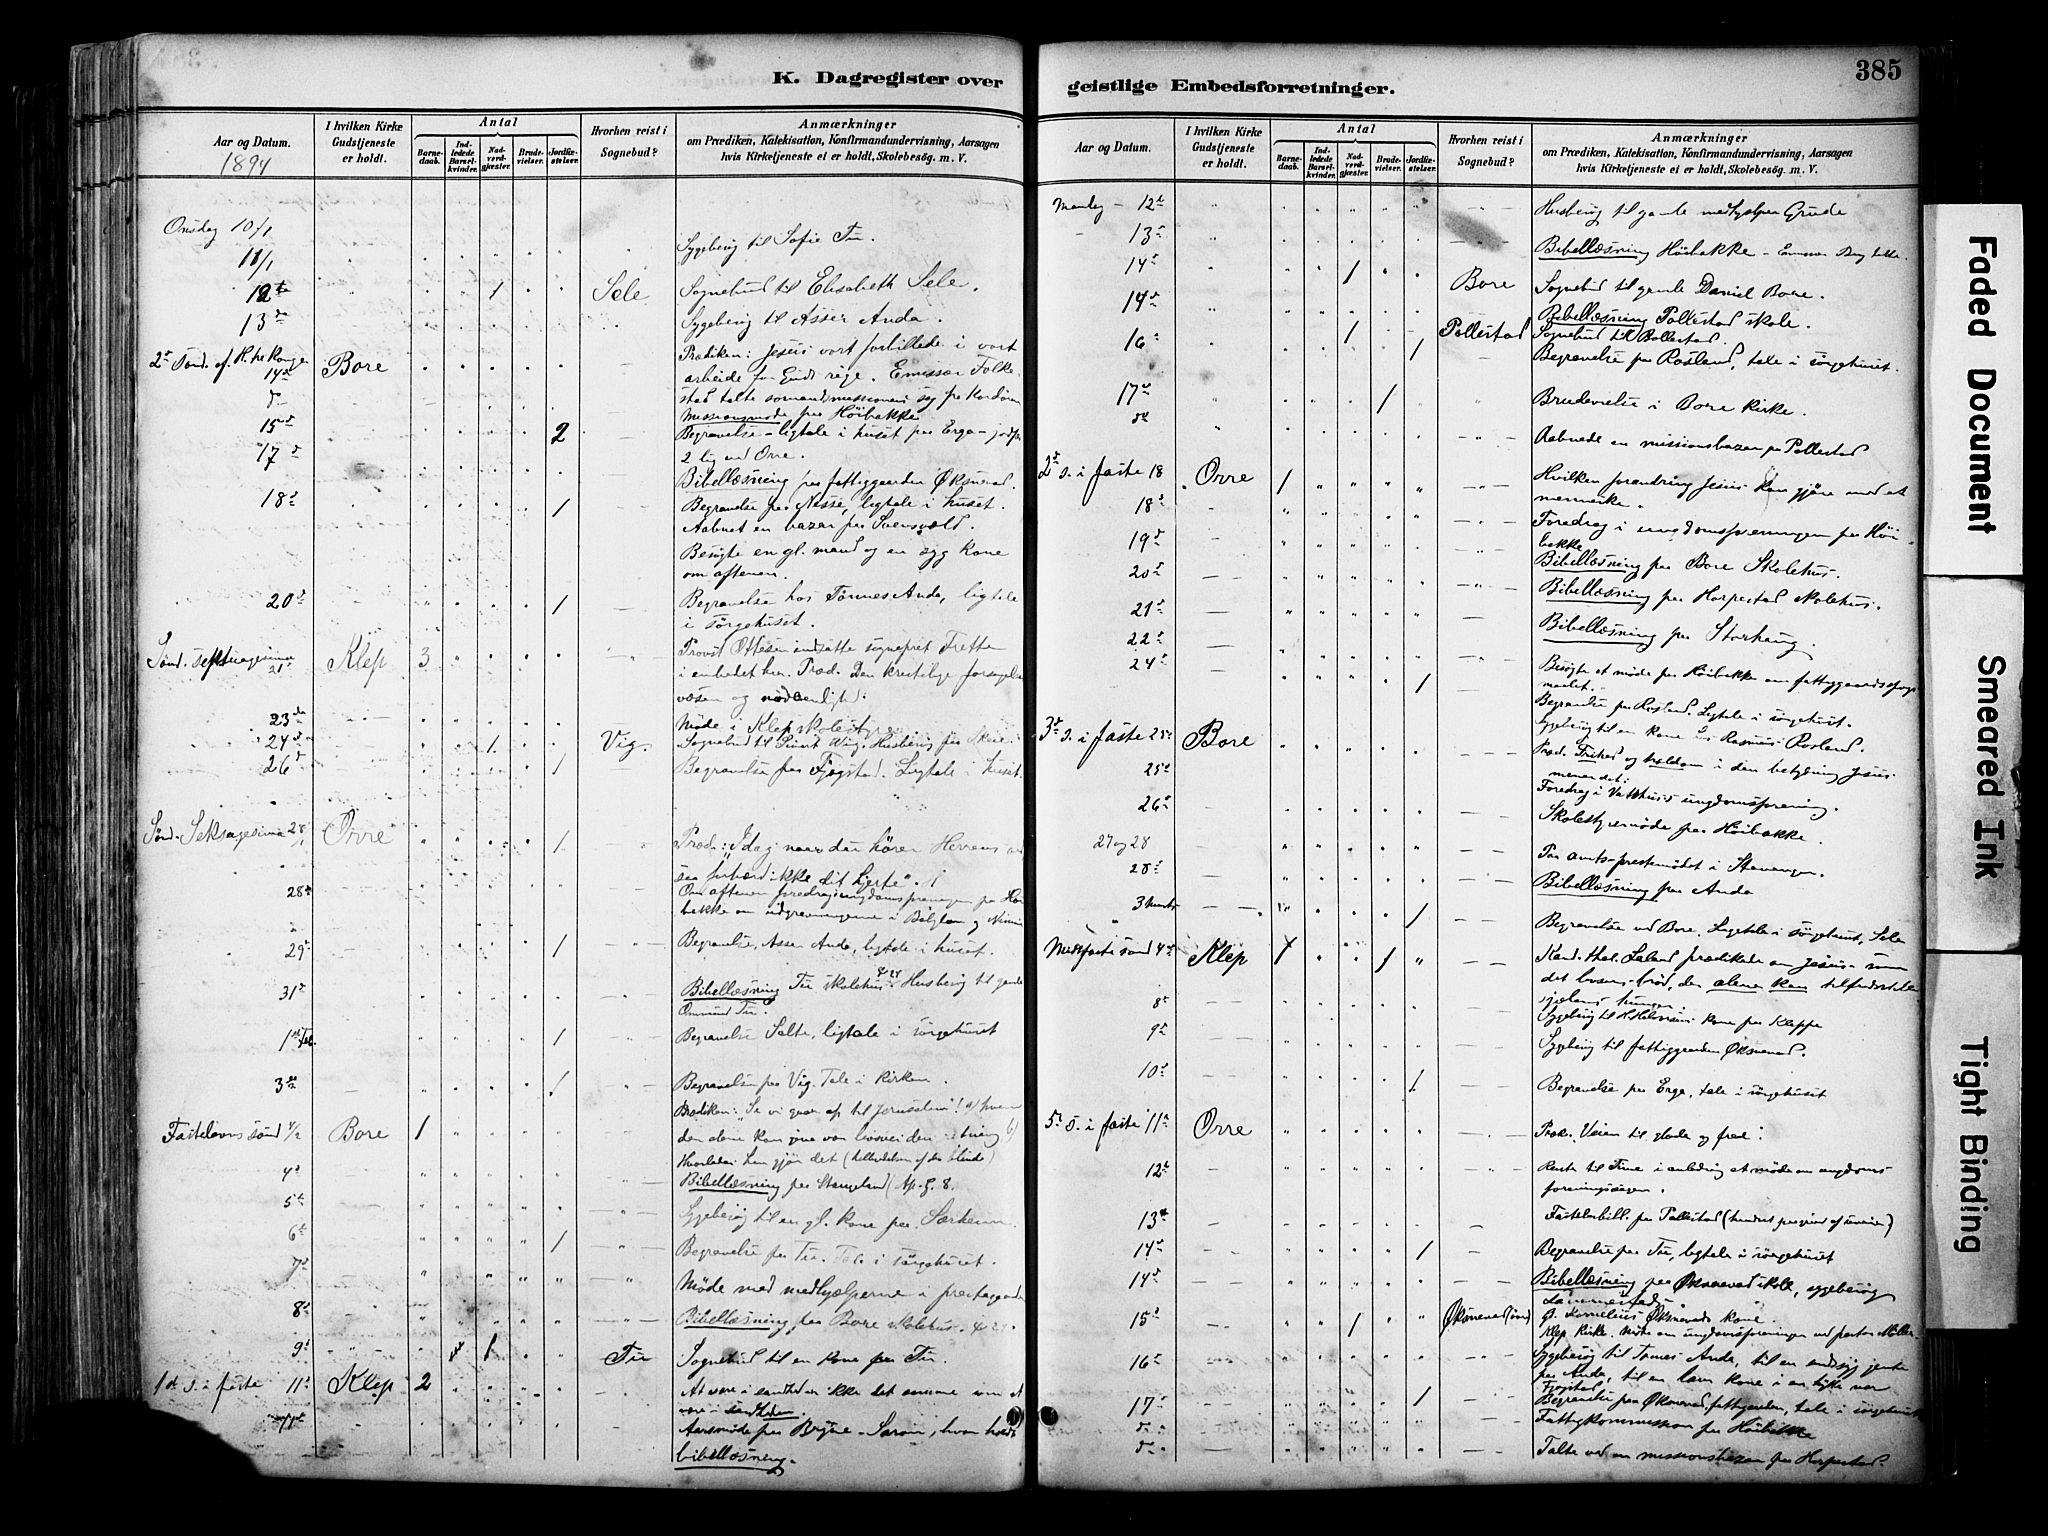 K. Dagregister over
Aar og Datum.
1894
I hvilken Kirke
Gudstjeneste
er holdt.
Antal
Barne-
daab.
Ind-
ledede
Barsel-
kvinder.
Nad-
verd-
gjester.
Brude-
vielser.
Jordfæ-
stelser.
Hvorhen reist i
Sognebud?
Anmærkninger
om Prædiken, Katekisation, Konfirmandundervisning, Aarsagen
hvis Kirketjeneste ei er holdt, Skolebesøg. m. V.
Onsdag 10/1 Sygebesøg til Sofie Tu.
11/1
12te 1 Sele Sognebud til Elisabeth Sele.
13de Sygebesøg til Asser Anda.
2den Sønd. ef. H. tre Konger 14de Bore Prædiken: Jesus vort forbillede i vort
arbeide for Guds rige. Emissær Folke-
stad talte
Missionsmøde paa Høibakke
15de 2 Begravelse - ligtale i huset paa Erga -
2 lig ved Orre.
17de Bibellæsning paa fattiggaarden Øksnevad.
18de 1 Begravelse paa Nesse, ligtale i huset.
Aabnet en bazar paa Svensvold.
Besøgte en gl. mand og en syg kone
om aftenen.
20de 1 Begravelse hos Tønnes Anda, ligtale
i sørgehuset.
Sønd. septuagesima 21 Klep 3 Provst Ottesen indsatte sogneprest Fretté
i embedet her. Præd. Den kristelige forsagelses
væsen og nødvendighed.
23de Møde i Klep skolestyre.
24de 1 Vig. Sognebud til Vig. Husbesøg paa Skeie
26de 1 Begravelse paa Fjogstad. Ligtale i huset.
Sønd. Seksagesima 28/1 Orre 1 Præd.: "Idag naar du hører Herrens
saa forhærd ikke dit hjerte".
28de Om aftenen foredrag i ungdomsforeningen paa Høi-
bakke om udgravningerne i Babylon og Ninive
29de 1 Begravelse, Asser Anda, ligtale i huset.
31te Bibellæsning Tu skolehus. Husbesøg til gamle
Omund Tu.
1ste Feb. 1 Begravelse Salte, ligtale i sørgehuset
3die 1 Begravelse paa Vig. Tale i kirken.
Fastelavns sønd 4/2 Bore 1 Prædiken: "Se vi gaar op til Jerusalem"!
Hvorledes han gjør det (helbredelsen af den blinde)
4de Bibellæsning paa Stangeland (Ap. G. 8.
5te Sygebesøg til en gl. kone paa Særheim.
6te 1 Begravelse paa Tu. Tale i sørgehuset.
7de Møde med medhjælperne i prestegaarden
8de Bibellæsning paa Bore skolehus.
9de 1 Tu Sognebud til en kone paa Tu.
1ste S. i faste 11te Klep 2 At være i sandheden ikke det samme som at
være i sandheden.
Aarsmøde paa Bryne - Saron, hvor holdt
bibellæsning.
geistlige Embedsforretninger.
385
Aar og Datum.
I hvilken Kirke
Gudstjeneste
er holdt.
Antal
Barne-
daab.
Ind-
ledede
Barsel-
kvinder.
Nad-
verd-
gjester.
Brude-
vielser.
Jordfæ-
stelser.
Hvorhen reist i
Sognebud?
Anmærkninger
om Prædiken, Katekisation, Konfirmandundervisning, Aarsagen
hvis Kirketjeneste ei er holdt, Skolebesøg. m. V.
Mandag 12te Husbesøg til gamle medhjælper Grude
13de Bibellæsning Høibakke - Emissær Berg talte.
14de 1 Bore Sognebud til gamle Daniel Bore.
14de Bibellæsning Pollestad skole.
16de 1 Pollestad Sognebud til Pollestad.
1 Begravelse paa Rosland, tale i sørgehuset.
17de 1 Brudevielse i Bore kirke.
do Aabnede en missionsbazar paa Pollestad
2den S. i faste 18 Orre 1 Hvilken forandring Jesus kan gjøre med et
menneske.
18de Foredrag i ungdomsforeningen paa Høi-
bakke
19de Bibellæsning paa Bore Skolehus.
20de Bibellæsning paa Horpestad skolehus.
21de Bibellæsning paa Storhaug.
22de Besøgte et møde paa Høibakke om fattiggaardsspørgs-
maalet.
24de 1 Begravelse paa Rosland. Ligtale i sørgehuset.
Sygebesøg til en kone hos Rasmus Rosland.
3die S. i faste 25de Bore Præd. Frihed og trældom i den betydning Jesus
mener det.
25de Foredrag i Vatshus ungdomsforening.
26de Skolestyremøde paa Høibakke.
27 og 28 Paa amts-prestemødet i Stavanger.
28de Bibellæsning paa Anda
3 marts 1 Begravelse ved Bore. Ligtale i sørgehuset, Sele
Midtfaste sønd 4de Klep 1 1 Kand. theol. Leland prædikede om Jesus - som
det livsens brød, der alene kan tilfredsstille
sjælens hunger.
8de Sygebesøg til kone paa Kleppe
9de Sygebesøg til fattiggaarden Øksnevad.
10de 1 Begravelse paa Erga, tale i sørgehuset
5te S. i faste 11te Orre Præk. Veien til glæde og fred.
12te Reiste til Time i anledning et møde om ungdoms
foreningssagen.
13de Pollestad
14de 1 Begravelse paa Tu, ligtale i sørgehuset
14de Bibellæsning paa Øksnevad skole, sygebesøg
15de 1 Øksnevad Kornelius Øksnevads kone.
Klep Kirke. Møde om ungdomsforeningen ved pastor Møller.
16de Sygebesøg til Tønnes Anda, til en
paa Anda, til en lam kone i en hytte nær
Fjogstad
17de 1 Begravelse paa Øksnevad fattiggaarden, tale i sørgehuset
do Fattigkommission paa Høibakke
do Talte ved en missionsbazar paa Horpestad.
Faded Document
Smeared Ink
Tight Binding